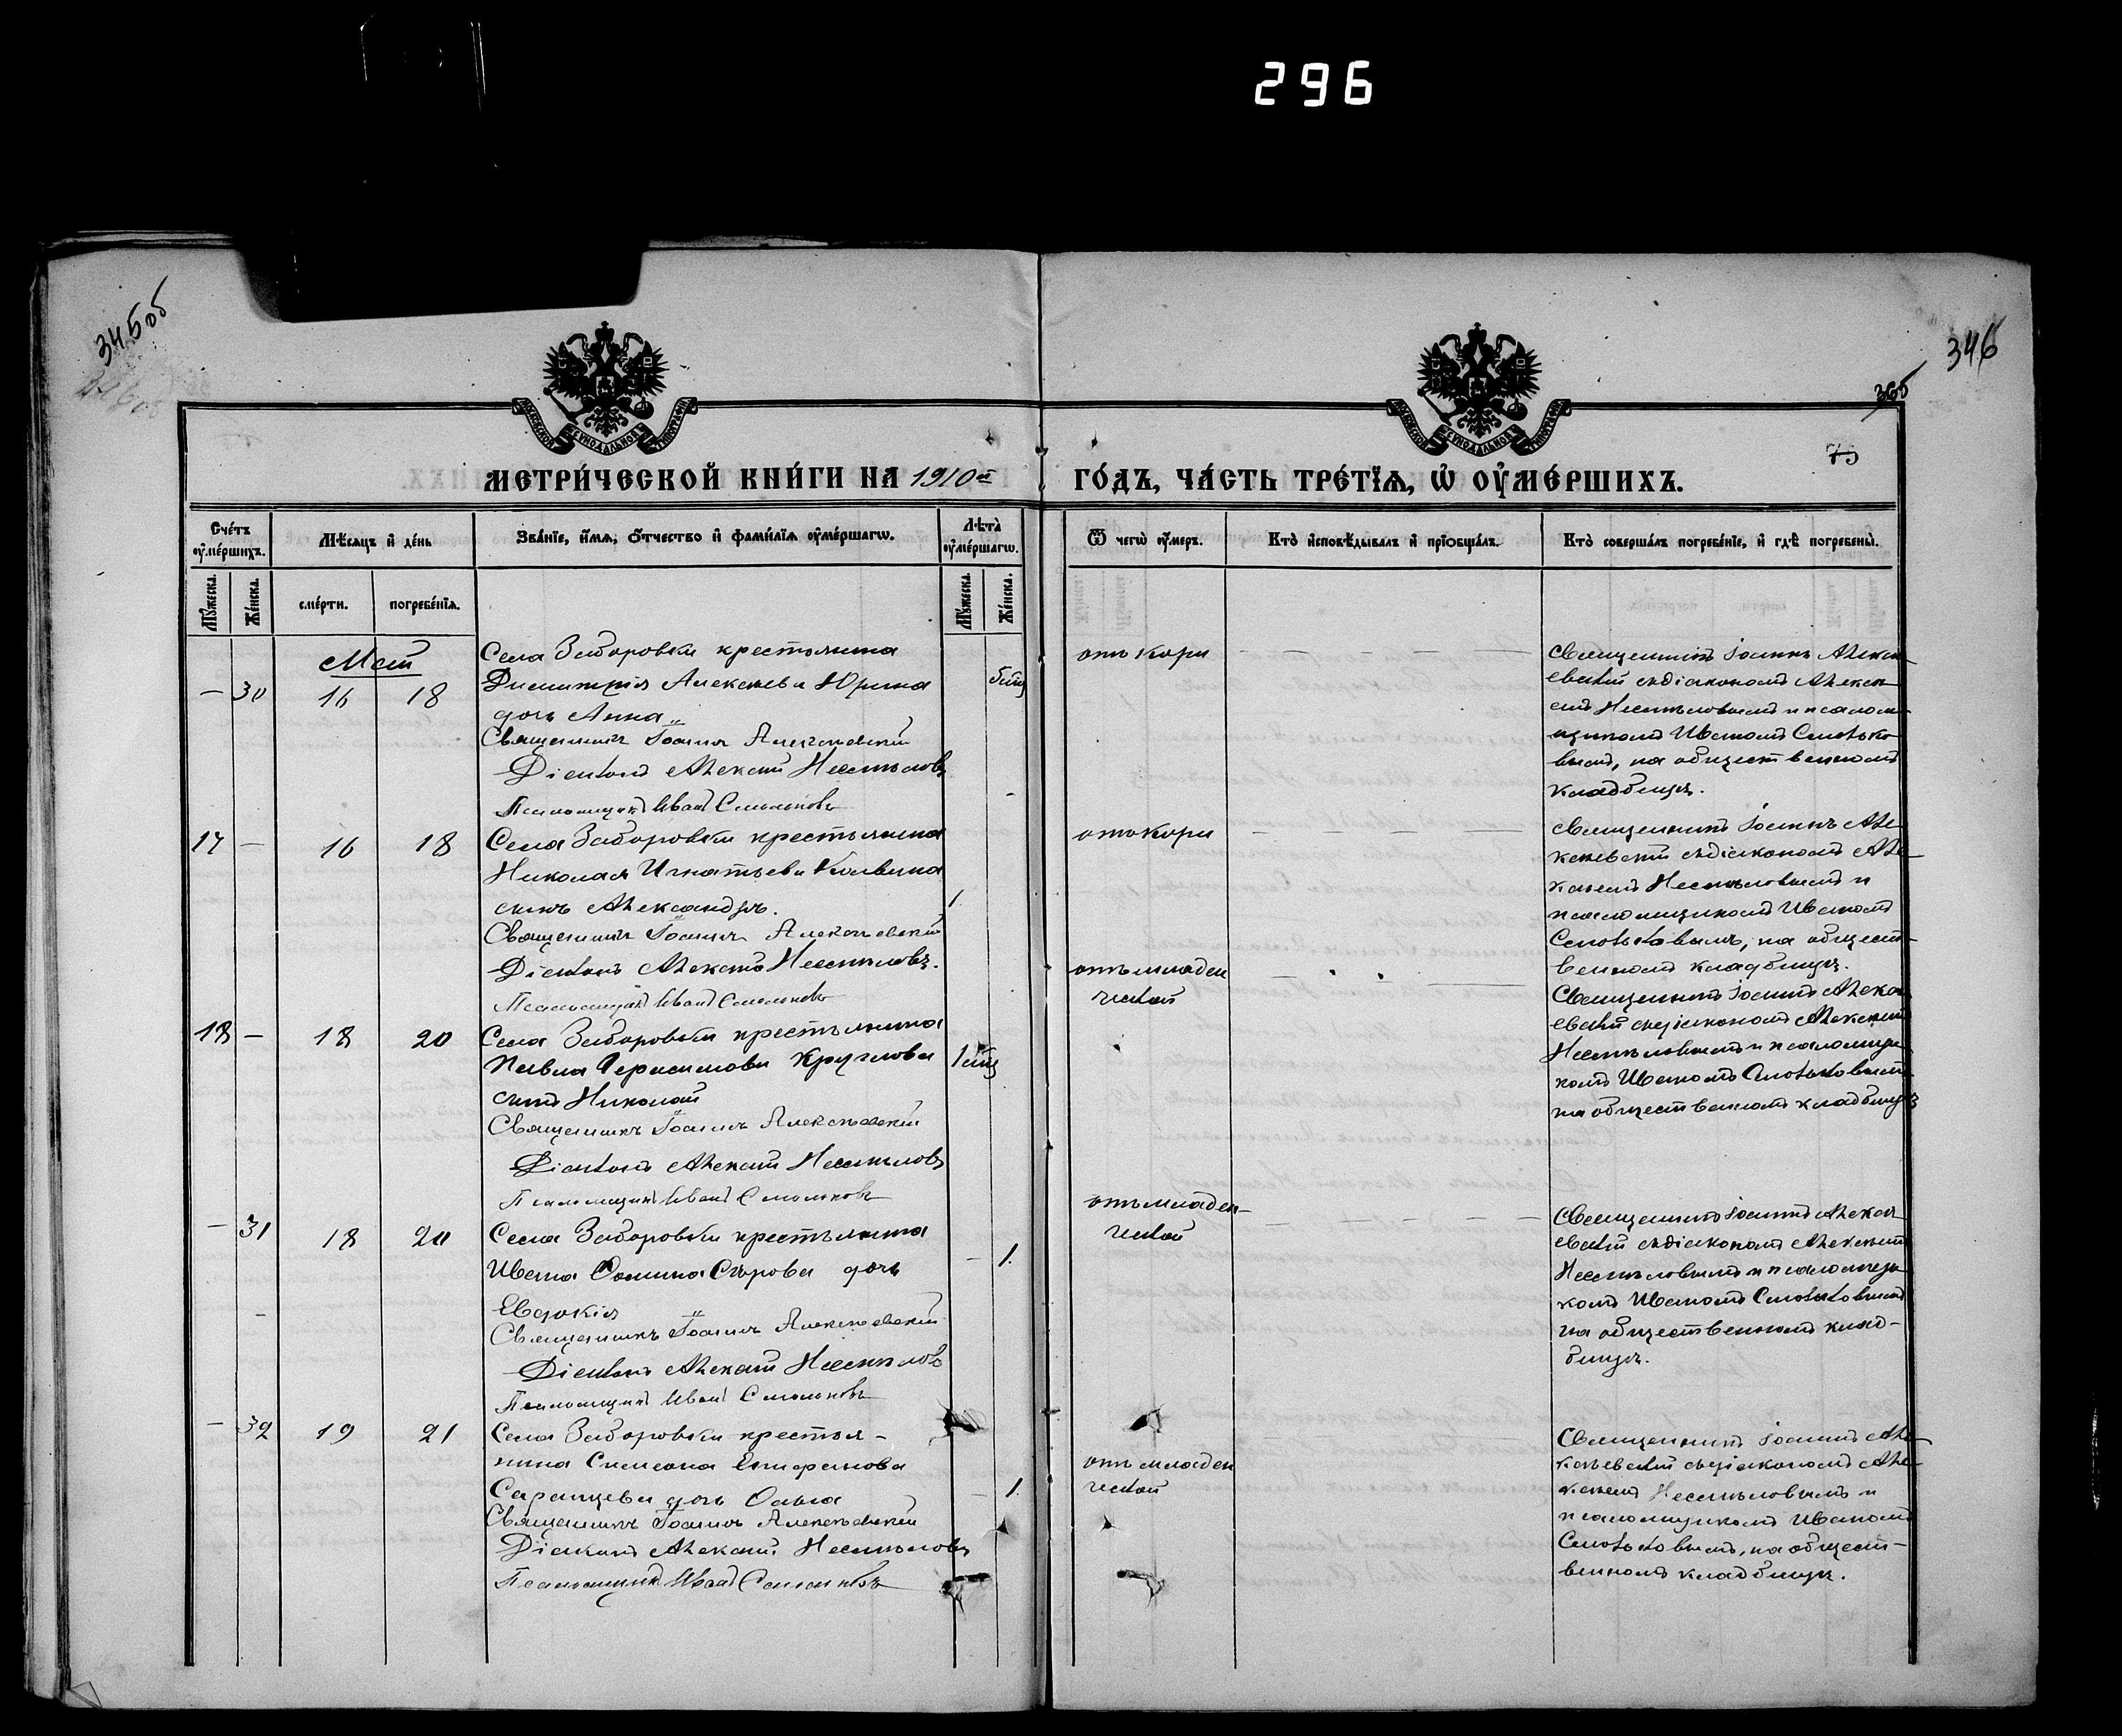 296
345 об
346
МОСКОВСКОЙ СУНОДАЛЬНОЙ ТИПОГРАФІИ
МОСКОВСКОЙ СУНОДАЛЬНОЙ ТИПОГРАФІИ
75
МЕТРИ́ЧЕСКОЙ КНИ́ГИ НА 1910й ГО́ДЪ, ЧА́СТЬ ТРЕ́ТЇѦ, Ѡ҆ ОУ҆МЕ́РШИХЪ.
Сче́тъ оу҆ме́ршихъ.
Мѣ́сѧцъ и҆ де́нь
Зва́нїе, и҆́мѧ, ѻ҆́тчество и҆ фами́лїѧ оу҆ме́ршагѡ.
Лѣ́та оу҆ме́ршагѡ.
Ѿ чегѡ̀ оу҆́меръ.
Кто̀ и҆сповѣ́дывалъ и҆ прїѡбща́лъ.
Кто̀ соверша́лъ погребе́нїе, и҆ гдѣ̀ погребены̀.
Мꙋ́жеска.
Же́нска.
сме́рти.
погребе́нїѧ.
Мꙋ́жеска.
Же́нска.
Май
— 30 16 18
Села Заборовки крестьянина
Димитрія Алексѣева Юрина
дочь Анна
Священникъ Іоаннъ Алексѣевскій
Діаконъ Алексѣй Несмѣловъ
Псаломщикъ Иванъ Смольковъ
отъ кори
Священникъ Іоаннъ Алексѣ-
евскій съ діакономъ Алексѣ-
емъ Несмѣловымъ и псалом-
щикомъ Иваномъ Смолько-
вымъ, на общественномъ
кладбищѣ.
17 — 16 18
Села Заборовки крестьянина
Николая Игнатьева
сынъ Александръ.
1
Священникъ Іоаннъ Алексѣевскій
Діаконъ Алексѣй Несмѣловъ.
Псаломщикъ Иванъ Смольковъ
отъ кори
Священникъ Іоаннъ Але-
ксѣевскій съ діакономъ Але-
ксѣемъ Несмѣловымъ и
псаломщикомъ Иваномъ
Смольковымъ, на общест-
венномъ кладбищѣ.
18 — 18 20
Села Заборовки крестьянина
Павла Герасимова Круглова
сынъ Николай
Священникъ Іоаннъ Алексѣевскій
Діаконъ Алексѣй Несмѣловъ
Псаломщикъ Иванъ Смольковъ
отъ младен
ческой
Священникъ Іоаннъ Алексѣ-
евскій съ діакономъ Алексѣемъ
Несмѣловымъ и псаломщи-
комъ Иваномъ Смольковымъ
на общественномъ кладбищѣ
— 31 18 20
Села Заборовки крестьянина
Ивана Сомина Сѣрова дочь
Евдокія
— 1.
Священникъ Іоаннъ Алексѣевскій
Діаконъ Алексѣй Несмѣловъ
Псаломщикъ Иванъ Смольковъ
отъ младен-
ческой
Священникъ Іоаннъ Алексѣ-
евскій съ діакономъ Алексѣемъ
Несмѣловымъ и псаломщи-
комъ Иваномъ Смольковымъ
на общественномъ клад-
бищѣ.
— 32 19 21
Села Заборовки крестья-
нина Симеона Епифанова
Саранцева дочь Ольга
— 1.
Священникъ Іоаннъ Алексѣевскій
Діаконъ Алексѣй Несмѣловъ
Псаломщикъ Иванъ Смольковъ
отъ младен
ческой
Священникъ Іоаннъ Але-
ксѣевскій съ діакономъ Але-
ксѣемъ Несмѣловымъ и
псаломщикомъ Иваномъ
Смольковымъ, на общест-
венномъ кладбищѣ.